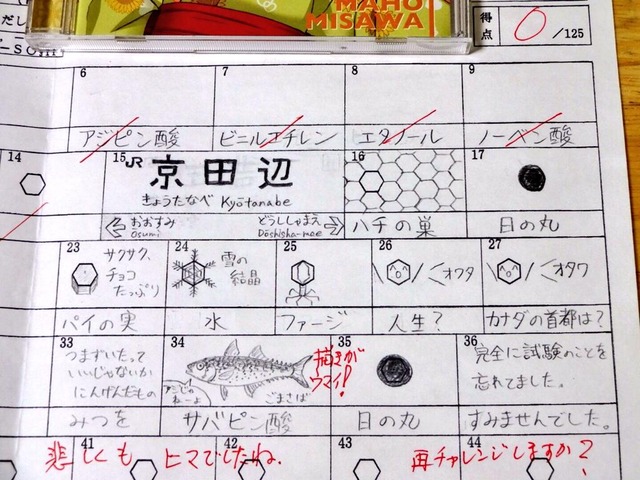 MAHO
MISAWA
得点 0 /125
6 7 8 9
アジピン酸 ビニルエチレン エタノール ノーベン酸
14 15 16 17
JR 京田辺
きょうたなべ Kyōtanabe
おおすみ どうししゃまえ
Osumi Dōshisha-mae
ハチの巣 日の丸
23 24 25 26 27
サクサク、
チョコ
たっぷり
雪の
結晶
\(^o^)/ オワタ \(^o^)/ オタワ
パイの実 水 ファージ 人生? カナダの首都は?
33 34 35 36
つまずいたって
いいじゃないか
にんげんだもの
アジじゃ
ねーよ
ごまさば
描きが
ウマイ!
完全に試験のことを
忘れてました。
みつを サバピン酸 日の丸 すみませんでした。
41 42 43 44
悲しくも ヒマでしたね.
再チャレンジしますか?